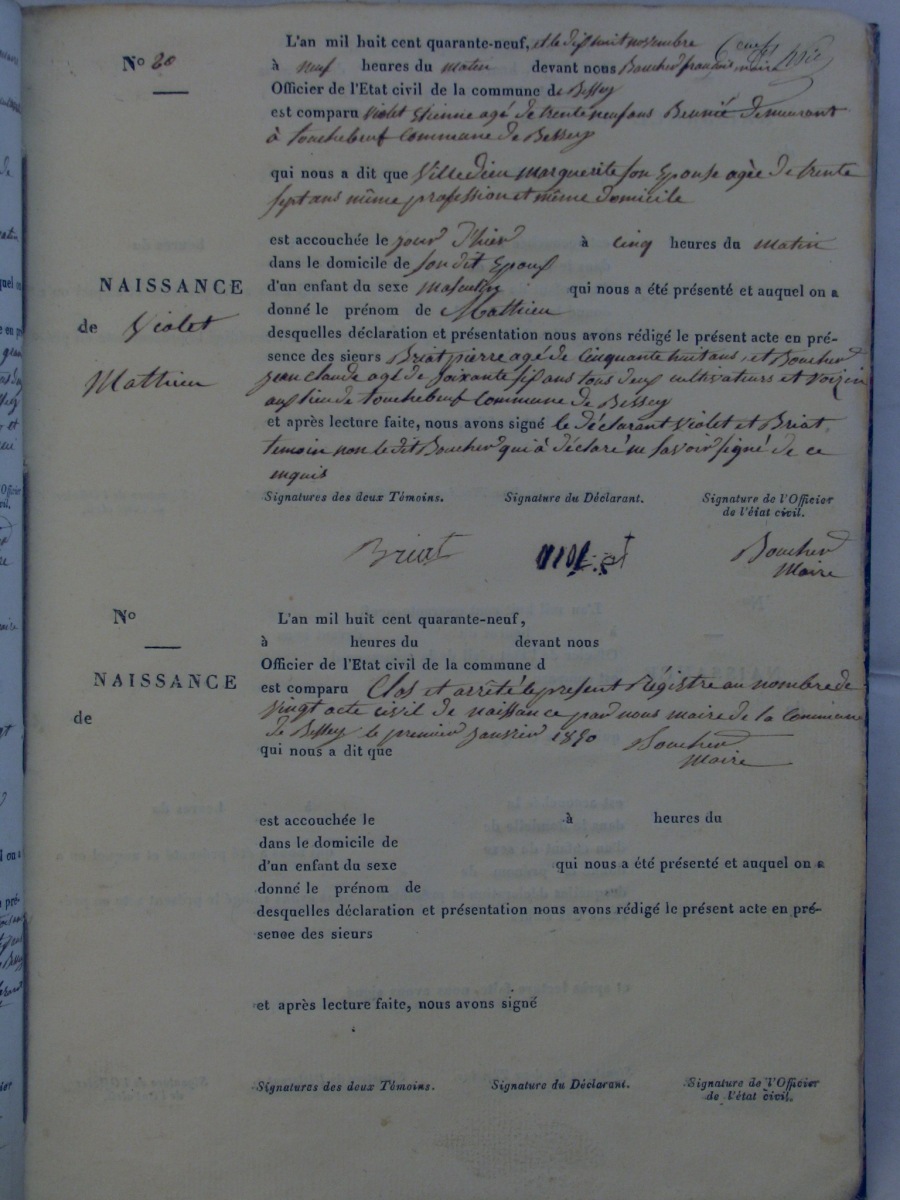 L'an mil huit cent quarante-neuf, et le dix huit novembre
No 20
à neuf heures du matin devant nous Boucher françois maire
Officier de l'Etat civil de la commune de Bessey
est comparu Violet Etienne agé de trente neuf ans demeurant
à touchebeuf Commune de Bessey
qui nous a dit que Villedieu marguerite son Epouse agèe de trente
sept ans même profession et même domicile
est accouchée le jour d'hier à cinq heures du matin
dans le domicile de son dit Epoux
NAISSANCE
d'un enfant du sexe masculin qui nous a été présenté et auquel on a
donné le prénom de Mathieu
de Violet
desquelles déclaration et présentation nous avons rédigé le présent acte en pré-
sence des sieurs Briat pierre agé de Cinquante huit ans, et Boucher
Mathieu
jean Claude agé de soixante six ans tous deux cultivateurs et voizin
au lieu de touchebeuf Commune de Bessey
et après lecture faite, nous avons signé le déclarant Violet et Briat
temoin non le dit Boucher qui à déclaré ne savoir signé de ce
inquis
Signatures des deux Témoins. Signature du Déclarant. Signature de l'Officier
de l'état civil.
Briat Violet Boucher
Maire
No
L'an mil huit cent quarante-neuf,
à heures du devant nous
Officier de l'Etat civil de la commune d
NAISSANCE
est comparu Clos et arrêté le present Régistre au nombre de
de
vingt acte civil de naissance par nous maire de la Commune
de Bessey le premier janvier 1850 Boucher
qui nous a dit que
Maire
est accouchée le à heures du
dans le domicile de
d'un enfant du sexe qui nous a été présenté et auquel on a
donné le prénom de
desquelles déclaration et présentation nous avons rédigé le présent acte en pré-
sence des sieurs
et après lecture faite, nous avons signé
Signatures des deux Témoins. Signature du Déclarant. Signature de l'Officier
de l'état civil.